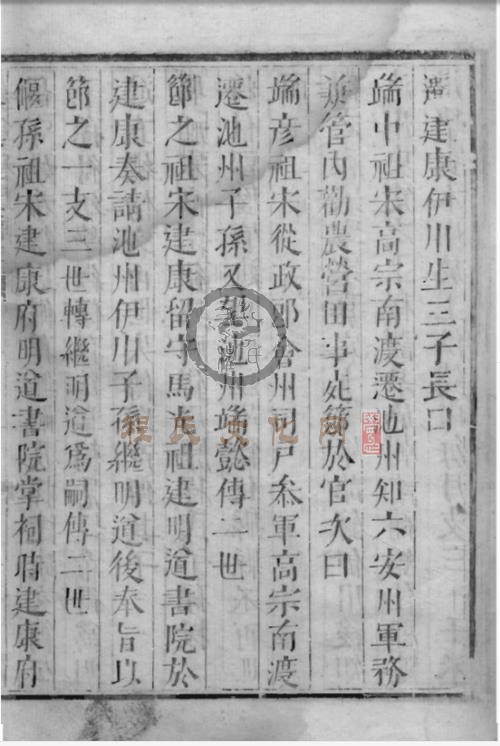 遷建康伊川生三子長曰
端中祖宋高宗南渡遷池州知六安州軍務
兼管内勸農營田事死節於官次曰
端彦祖宋從政郎會州司戶叅軍高宗南渡
遷池州子孫又望池州端懿傳二世
節之祖宋建康留守馬光祖建明道書院於
建康奏請池州伊川子孫繼明道後奉旨以
節之一支三世轉繼明道爲嗣傳二世
偃孫祖宋建康府明道書院掌祠時建康府
程氏文化网